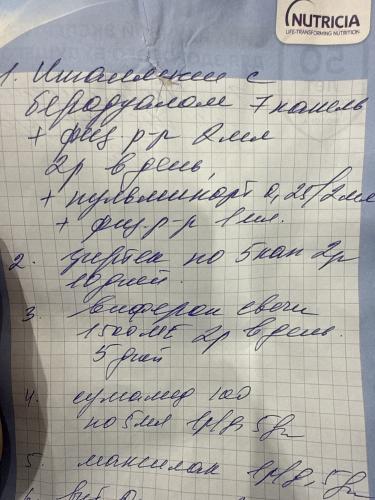 NUTRICIA
LIFE-TRANSFORMING NUTRITION
50
1. Ингаляции с
беродуалом 7 капель
+ физ р-р 2 мл
2р в день,
+ пульмикорт 0,25/2мл
+ физ.р-р 1 мл.
2. зиртек по 5 кап 2р
10 дней.
3. виферон свечи
150000МЕ 2р в день.
5 дней
4. сумамед 100
по 5 мл 1р/д 5 дн
5. максилак 1р/д, 5 дн
6.